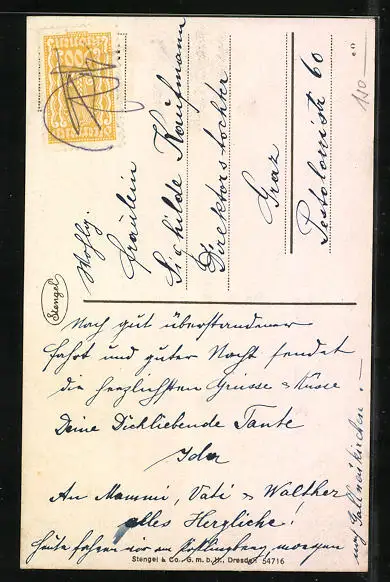 Wohlg.
Fräulein
Sichilde Kaufmann
Direktorstochter
Graz
Pestalozzistr 60
Stengel
Nach gut überstandener
Fahrt und guter Nacht sendet
die herzlichsten Grüsse & Küsse
Deine Dichliebende Tante
Ida
An Mammi, Vati & Walther
alles Herzliche!
Heute fahren wir am Pöstlingberg, morgen
nach Gallneukirchen.
Stengel & Co., G. m. b. H., Dresden 54716
150-